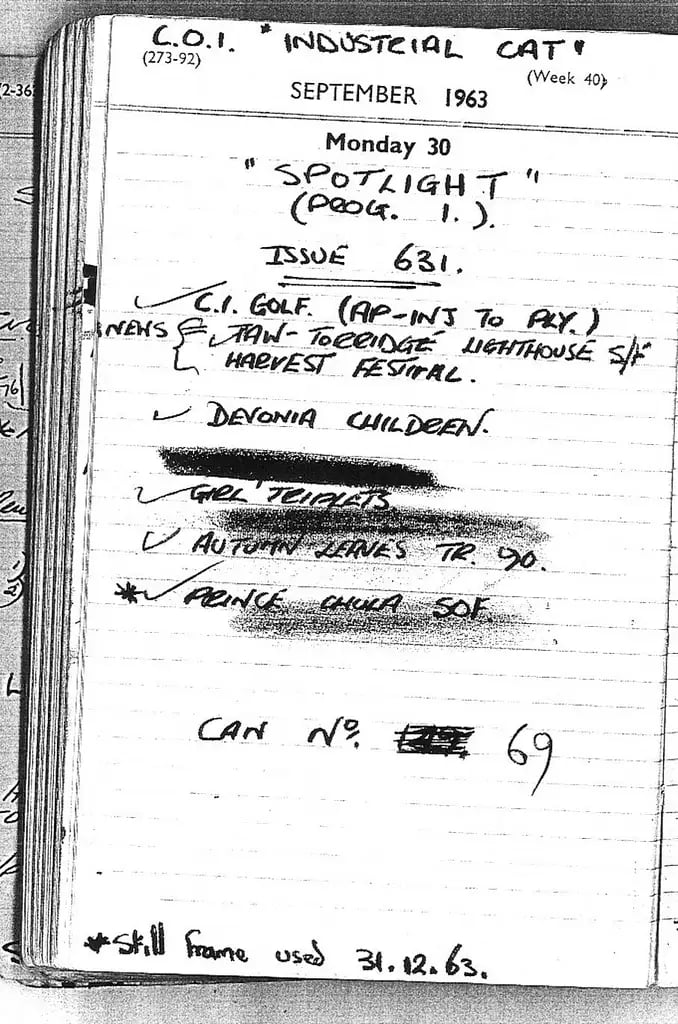 C.O.I. "INDUSTRIAL CAT"
(273-92)
(Week 40)
SEPTEMBER 1963
Monday 30
"SPOTLIGHT"
(PROG. 1.).
ISSUE 631.
C.I. GOLF. (AP-INJ TO PLY.)
NEWS TAW-TORRIDGE LIGHTHOUSE S/F
HARVEST FESTIVAL.
DEVONIA CHILDREN.
GIRL TRIPLETS
AUTUMN LEAVES TR. 90.
* PRINCE CHULA SOF.
CAN Nº. 69
* Still frame used 31.12.63.